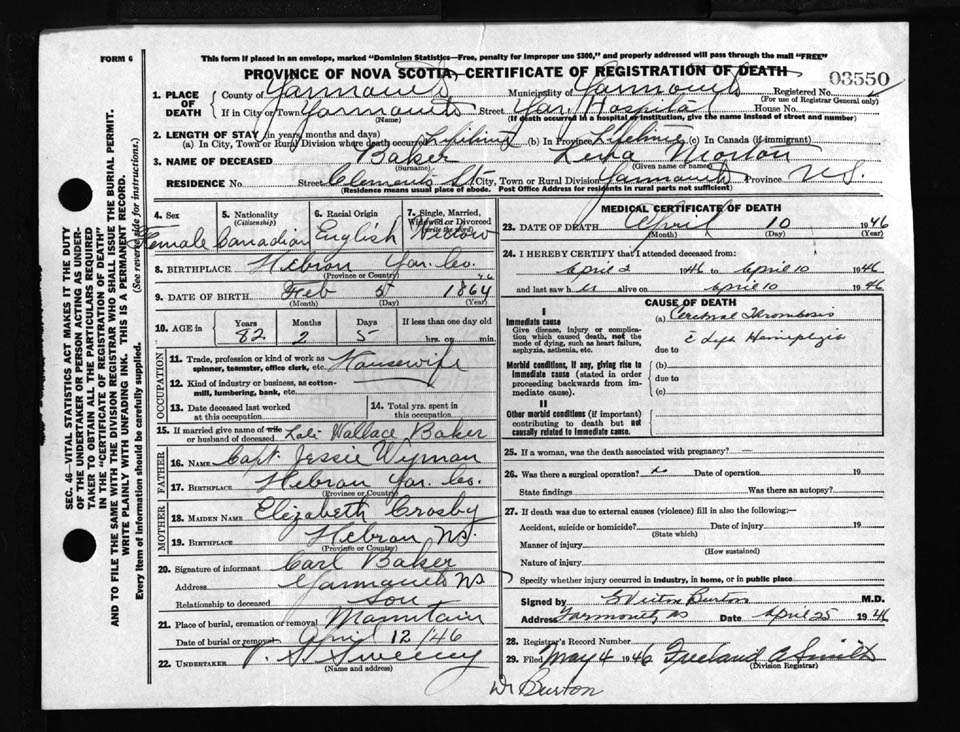 FORM 6
This form if placed in an envelope, marked "Dominion Statistics—Free, penalty for improper use $300," and properly addressed will pass through the mail "FREE"
PROVINCE OF NOVA SCOTIA—CERTIFICATE OF REGISTRATION OF DEATH
03550
1. PLACE OF DEATH
County of Yarmouth Municipality of Yarmouth Registered No.
(For use of Registrar General only)
If in City or Town Yarmouth Street Yar. Hospital House No.
(Name) (If death occurred in a hospital or institution, give the name instead of street and number)
2. LENGTH OF STAY (in years, months and days)
(a) In City, Town or Rural Division where death occurred Lifetime (b) in Province Lifetime (c) in Canada (if immigrant)
3. NAME OF DECEASED Baker
(Surname) (Given name or names)
RESIDENCE No. Street Clements St City, Town or Rural Division Yarmouth Province N.S.
(Residence means usual place of abode. Post Office Address for residents in rural parts not sufficient)
4. Sex
Female
5. Nationality
(Citizenship)
Canadian
6. Racial Origin
English
7. Single, Married, Widowed or Divorced
(write the word)
Widow
8. BIRTHPLACE Hebron Yar. Co.
(Province or Country)
9. DATE OF BIRTH Feb 5 1864
(Month) (Day) (Year)
10. AGE in Years Months Days If less than one day old
82 2 5 hrs. or min.
OCCUPATION
11. Trade, profession or kind of work as spinner, teamster, office clerk, etc. Housewife
12. Kind of industry or business, as cotton-mill, lumbering, bank, etc.
13. Date deceased last worked at this occupation
14. Total yrs. spent in this occupation
15. If married give name of wife or husband of deceased Wallace Baker
FATHER
16. NAME Capt. Jessie Wyman
17. BIRTHPLACE Hebron Yar. Co.
(Province or Country)
MOTHER
18. MAIDEN NAME Elizabeth Crosby
19. BIRTHPLACE Hebron N.S.
(Province or Country)
20. Signature of informant Carl Baker
Address Yarmouth NS
Relationship to deceased Son
21. Place of burial, cremation or removal Mountain
Date of burial or removal April 12/46
22. UNDERTAKER V. S. Sweeny
(Name and address)
MEDICAL CERTIFICATE OF DEATH
23. DATE OF DEATH April 10 1946
(Month) (Day) (Year)
24. I HEREBY CERTIFY that I attended deceased from:
April 2 1946 to April 10 1946
and last saw her alive on April 10 1946
CAUSE OF DEATH
I
Immediate cause
Give disease, injury or complication which caused death, not the mode of dying, such as heart failure, asphyxia, asthenia, etc.
(a) Cerebral Thrombosis
c Left Hemiplegia
due to
Morbid conditions, if any, giving rise to immediate cause (stated in order proceeding backwards from immediate cause).
(b)
due to
(c)
II
Other morbid conditions (if important) contributing to death but not causally related to immediate cause.
25. If a woman, was the death associated with pregnancy? —
26. Was there a surgical operation? no Date of operation 19
State findings Was there an autopsy?
27. If death was due to external causes (violence) fill in also the following:—
Accident, suicide or homicide? Date of injury 19
(State which)
Manner of injury
(How sustained)
Nature of injury
Specify whether injury occurred in industry, in home, or in public place
Signed by Burton M.D.
Address Yarmouth NS Date April 25 1946
28. Registrar's Record Number
29. Filed May 4 1946 Freeland A Smith
(Division Registrar)
Dr Burton
SEC. 46—VITAL STATISTICS ACT MAKES IT THE DUTY OF THE UNDERTAKER OR PERSON ACTING AS UNDERTAKER TO OBTAIN ALL THE PARTICULARS REQUIRED IN THE "CERTIFICATE OF REGISTRATION OF DEATH" AND TO FILE THE SAME WITH THE DIVISION REGISTRAR WHO SHALL ISSUE THE BURIAL PERMIT.
WRITE PLAINLY WITH UNFADING INK. THIS IS A PERMANENT RECORD.
Every item of information should be carefully supplied. (See reverse side for instructions.)